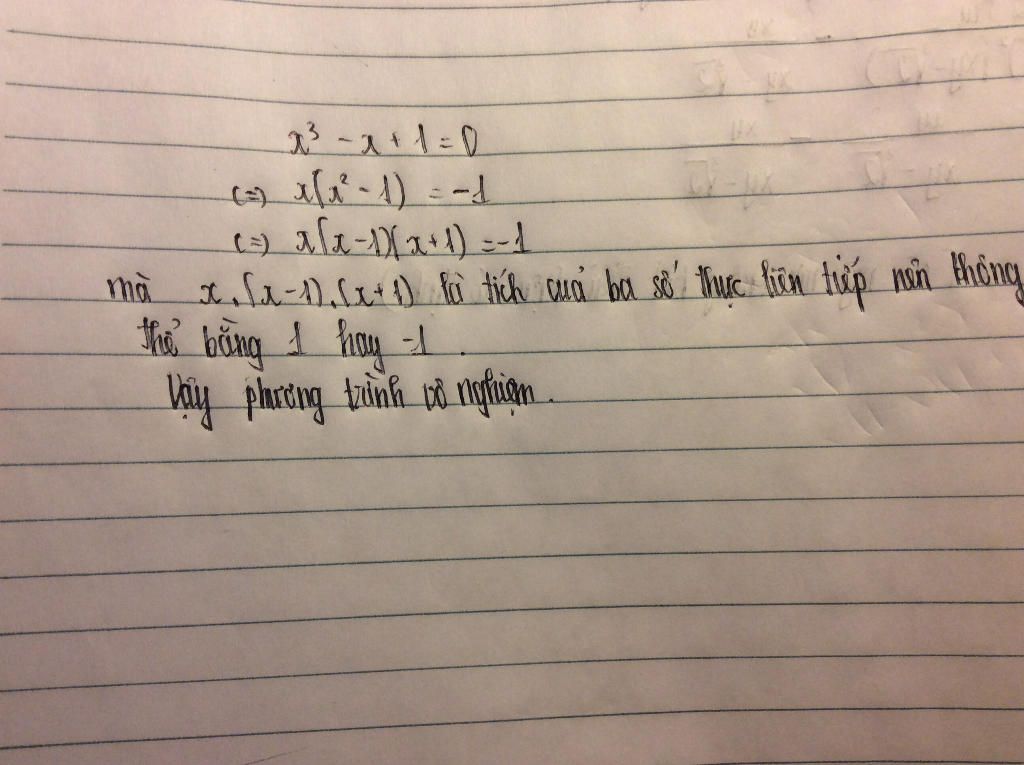 x³ - x + 1 = 0
(=) x(x² - 1) = -1
(=) x(x-1)(x+1) = -1
mà x.(x-1).(x+1) là tích của ba số thực liên tiếp nên không
thể bằng 1 hay -1.
Vậy phương trình vô nghiệm.